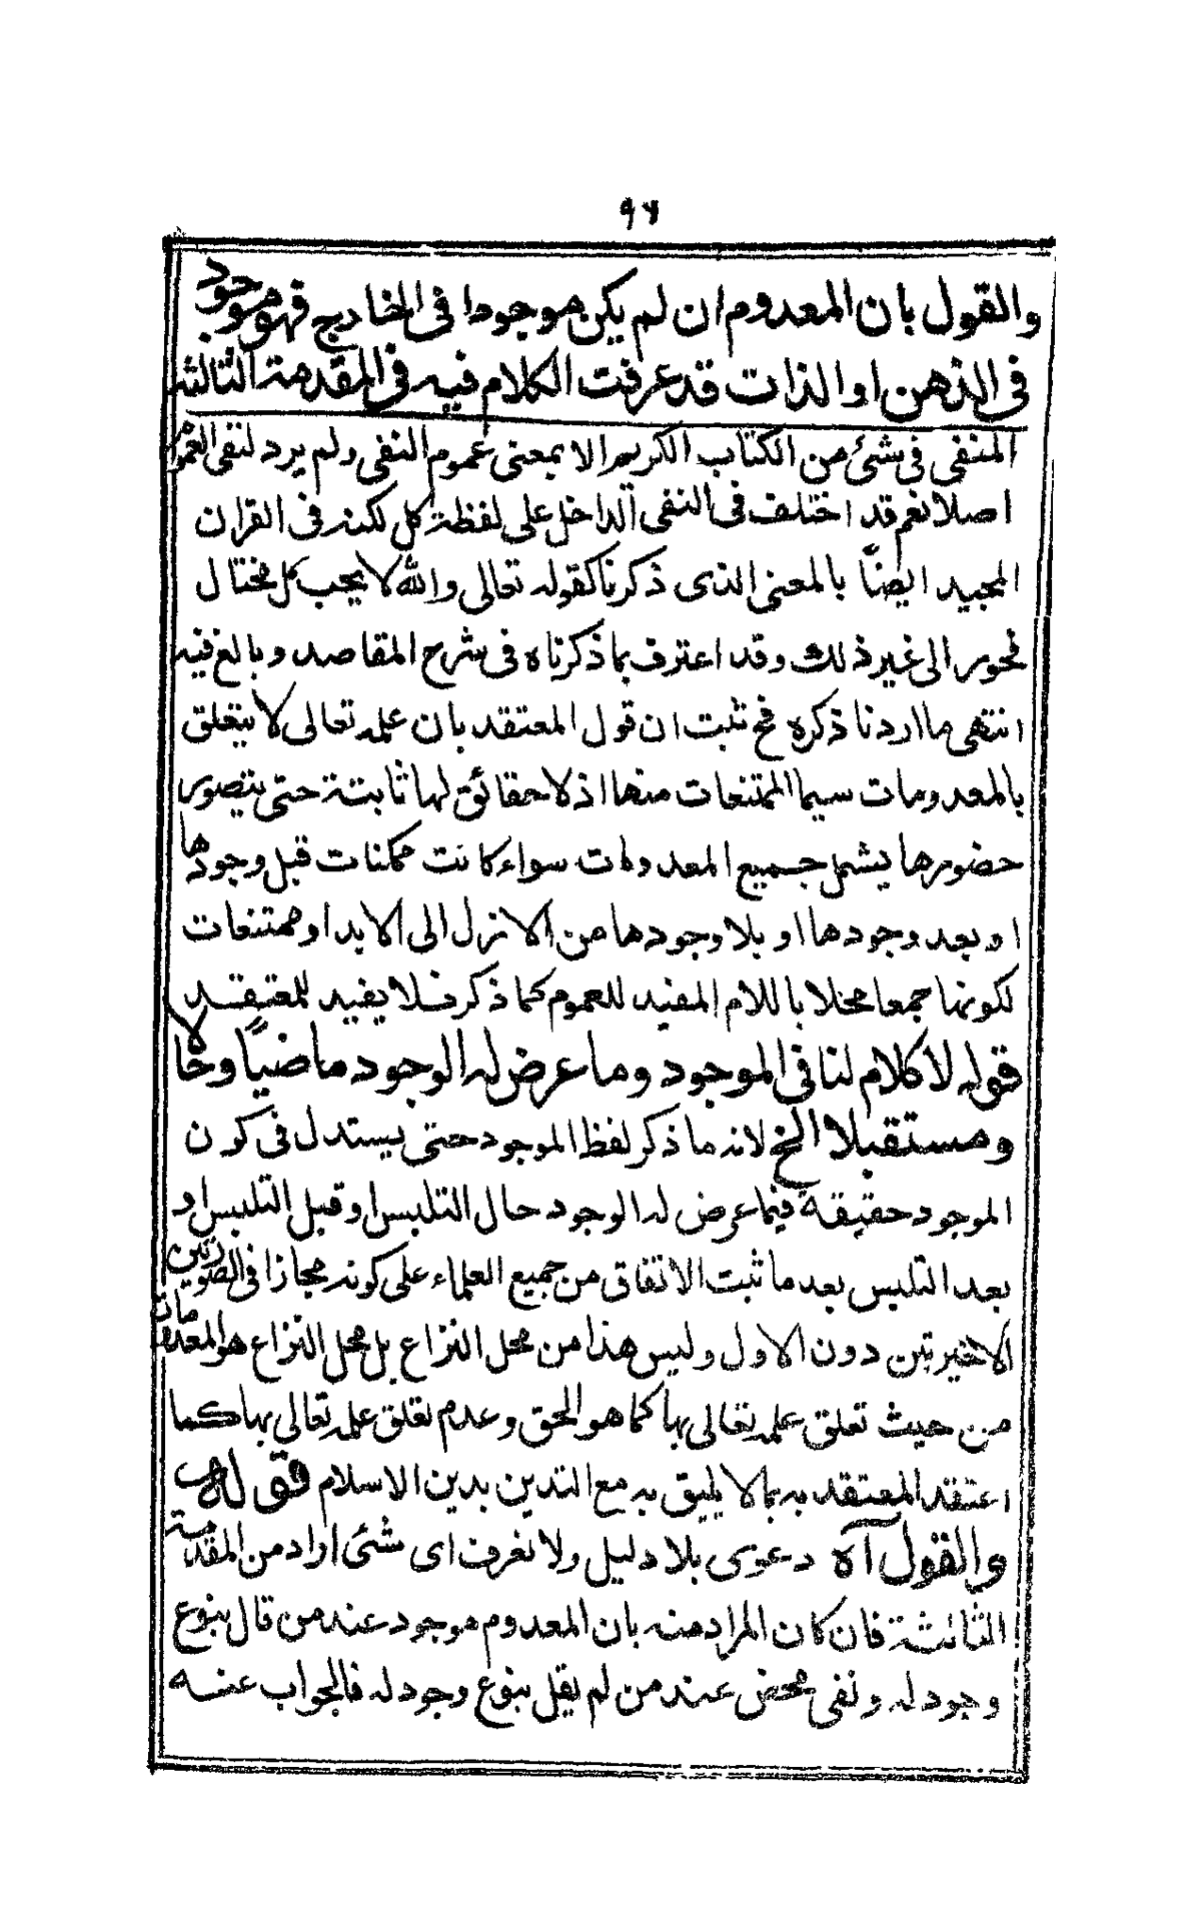 ٩٧
والقول بان المعدوم ان لم يكن موجودا فى الخارج فهو موجود
فى الذهن او الذات قد عرفت الكلام فيه فى المقدمة الثالثه
المنفى فى شئ من الكتاب الكريم الا بمعنى عموم النفى ولم يرد لنفى العموم
اصلا نعم قد اختلف فى النفى الداخل على لفظة كل لكنه فى القران
المجيد ايضاً بالمعنى الذى ذكرنا كقوله تعالى والله لا يحب كل مختال
فخور الى غير ذلك وقد اعترف بما ذكرناه فى شرح المقاصد وبالغ فيه
انتهى ما اردنا ذكره فح ثبت ان قول المعتقد بان علمه تعالى لا يتعلق
بالمعدومات سيما الممتنعات منها اذ لا حقائق لها ثابتة حتى يتصور
حضورها يشمل جميع المعدومات سواء كانت ممكنات قبل وجودها
او بعد وجودها او بلا وجودها من الازل الى الابد او ممتنعات
لكونها جمعا محلا باللام المفيد للعموم كما ذكر فلا يفيد للمعتقد
قوله لا كلام لنا فى الموجود وما عرض له الوجود ماضياً وحالا
ومستقبلا الخ لانه ما ذكر لفظ الموجود حتى يستدل فى كون
الموجود حقيقة فيما عرض له الوجود حال التلبس او قبل التلبس او
بعد التلبس بعد ما ثبت الاتفاق من جميع العلماء على كونه مجازا فى الصورتين
الاخيرتين دون الاول وليس هذا من محل النزاع بل محل النزاع هو المعدومات
من حيث تعلق علمه تعالى بها كما هو الحق وعدم تعلق علمه تعالى بها كما
اعتقد المعتقد به بما لا يليق به مع التدين بدين الاسلام قوله
والقول آه دعوى بلا دليل ولا نعرف اى شئ اراد من المقدمة
الثالثة فان كان المراد منه بان المعدوم موجود عند من قال بنوع
وجود له ونفى محض عند من لم يقل بنوع وجود له فالجواب عنه